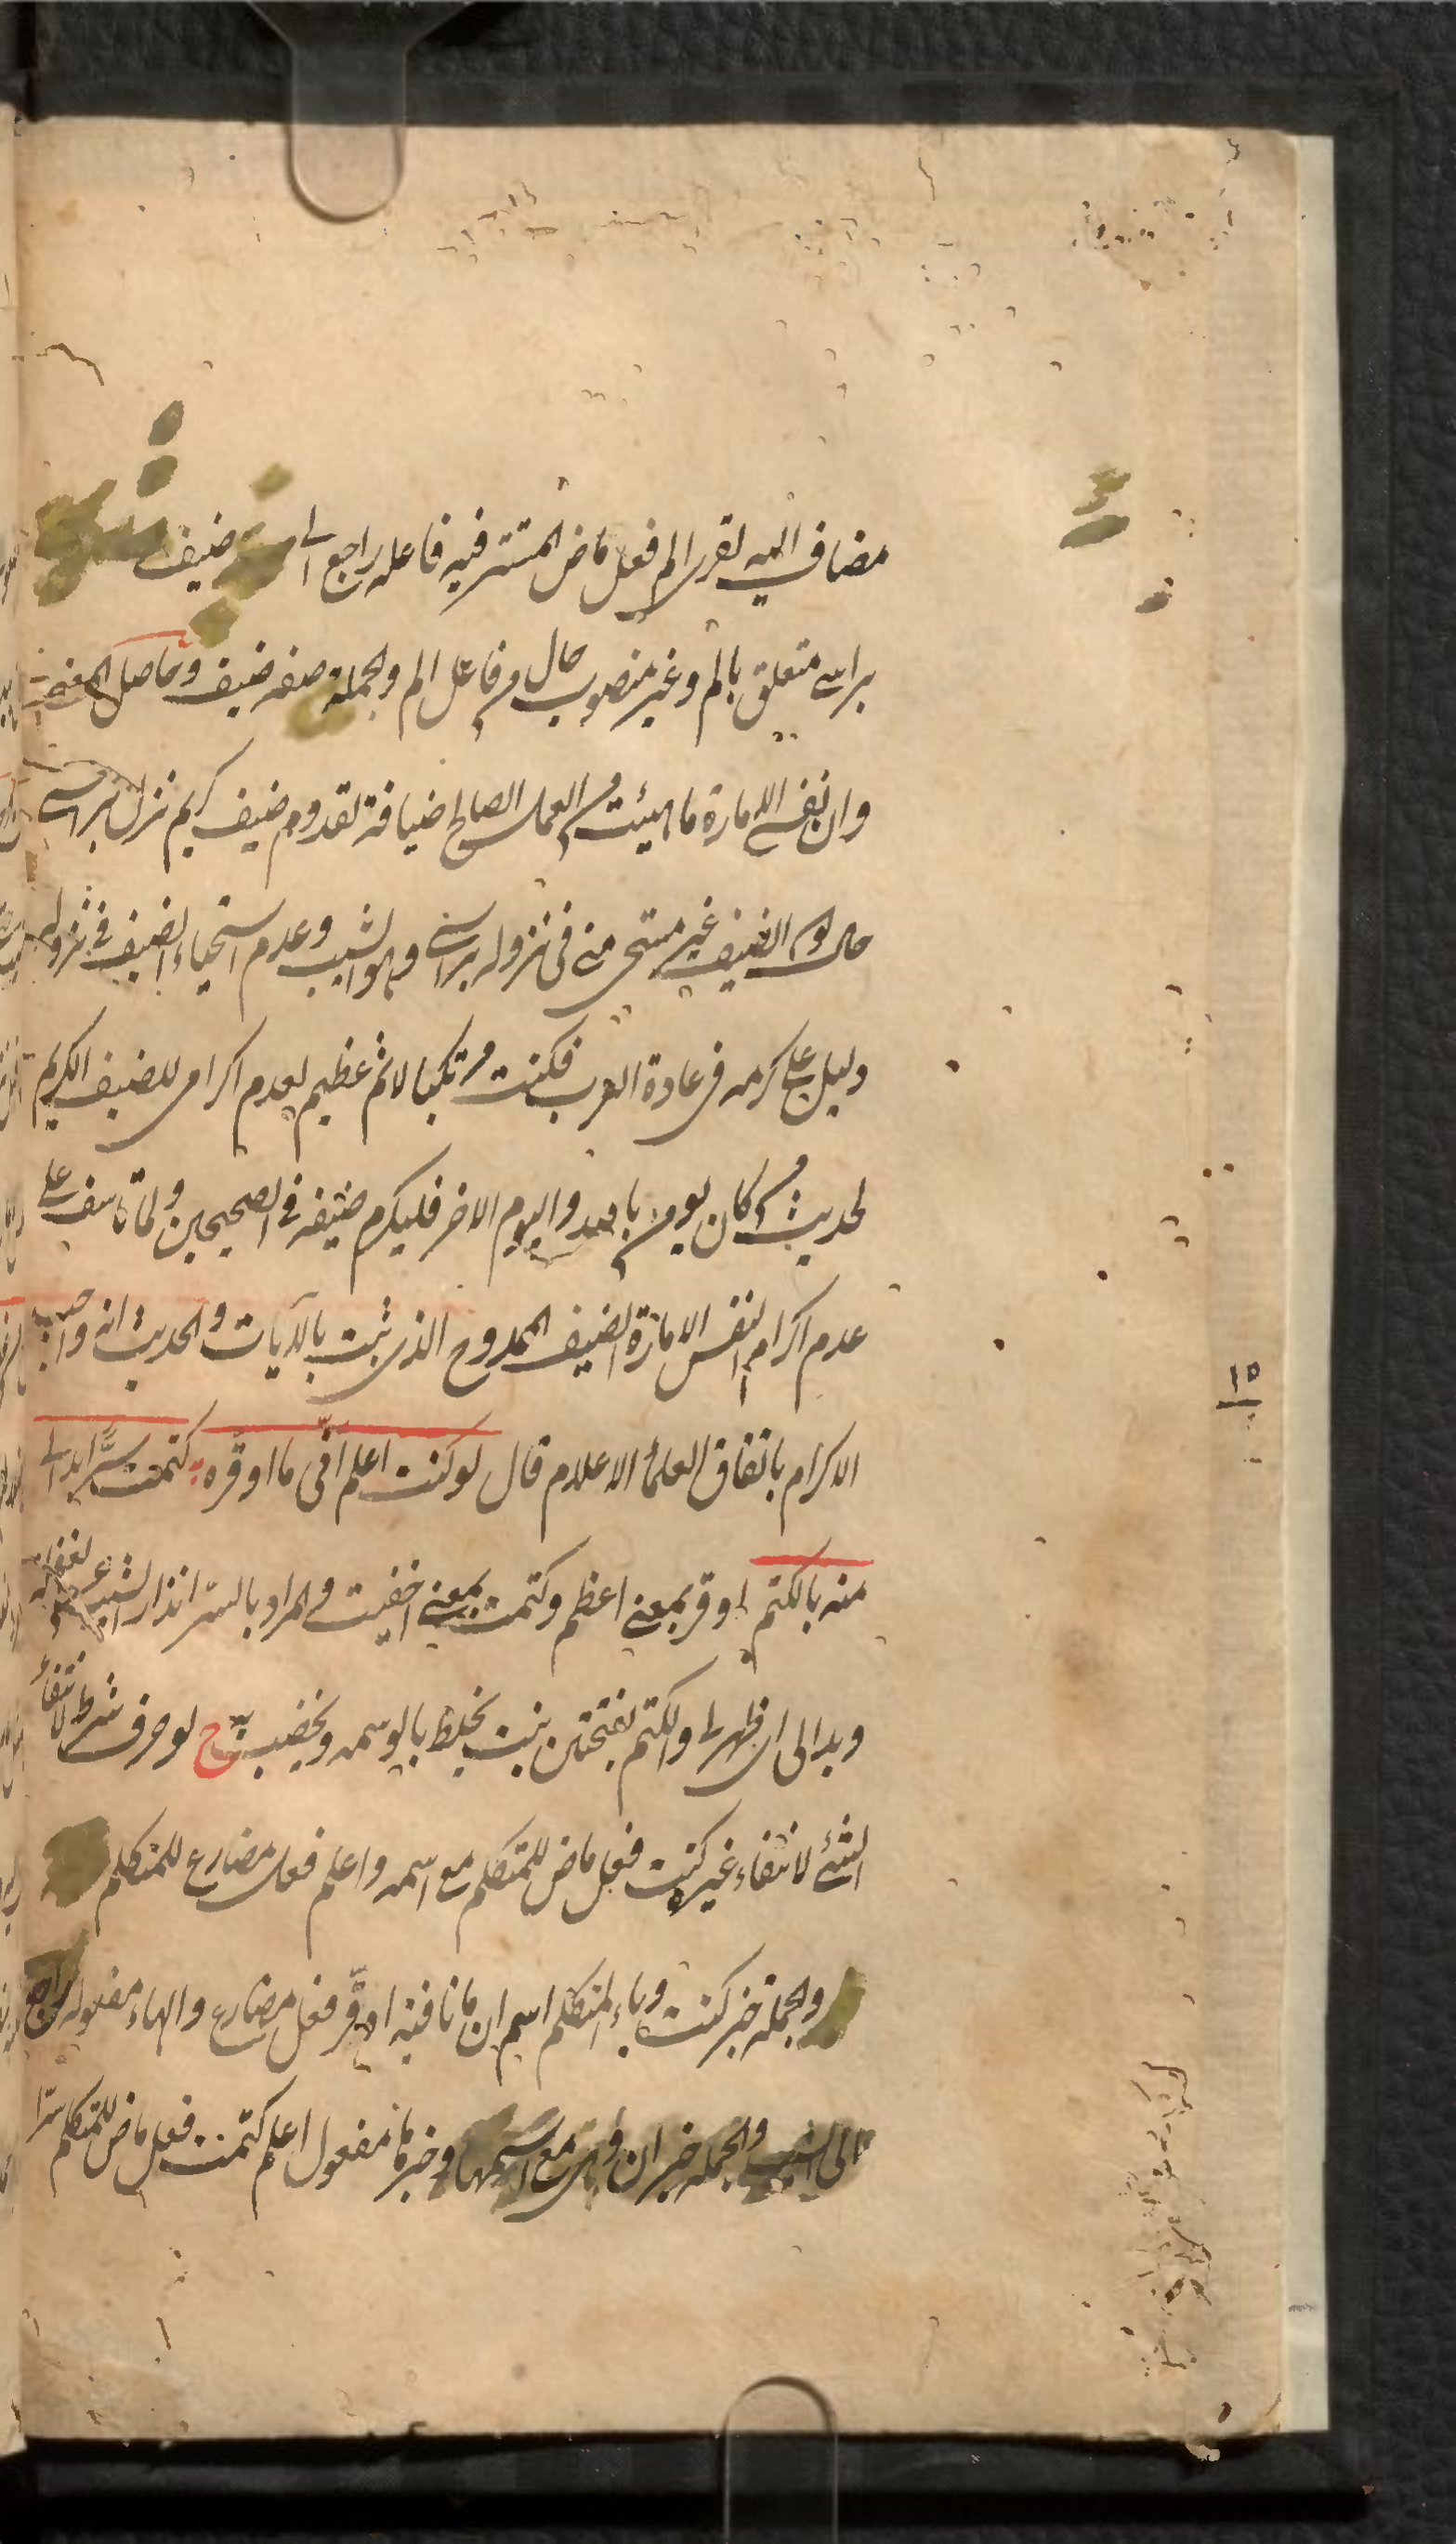 مضاف اليه لقرى الم فعل ماض المستتر فيه فاعله راجع الى ضيف
براسى متعلق بالم وغير منصوب حال من فاعل الم والجملة صفه ضيف وحاصل المعنى
وان نفسى الامارة ما هيئت من العمل الصالح ضيافة لقدوم ضيف كريم نزل براسى
حال كون الضيف غير مستحى منى فى نزوله براسى وهو الشيب وعدم استحياء الضيف فى نزوله
دليل على كرمه فى عادة العرب فكنت مرتكبا لاثم عظيم لعدم اكرامى للضيف الكريم
لحديث من كان يومن بالله واليوم الاخر فليكرم ضيفه فى الصحيحين ولما تاسف على
عدم اكرام النفس الامارة الضيف الممدوح الذى ثبت بالآيات والحديث انه واجب
الاكرام باتفاق العلمأ الاعلام قال لو كنت اعلم انّى ما اوقّره كتمت سرًّا بدا لى
منه بالكتم اوقر بمعنى اعظم وكتمت بمعنى اخفيت والمراد بالسّر انذار الشيب
وبدا لى اى ظهر لى والكتم بفتحتين نبت يخلط بالوسمه ويخضب به ح لو حرف شرط لانتفأ
الشئ لانتفاء غيره كنت فعل ماض للمتكلم مع اسمه واعلم فعل مضارع للمتكلم
والجملة خبر كنت وياء المتكلم اسم ان ما نافية اوقّر فعل مضارع والهاء مفعوله راجع
الى الشيب والجملة خبر ان وهى مع اسمها وخبرها مفعول اعلم كتمت فعل ماض للمتكلم سرّا
١٥